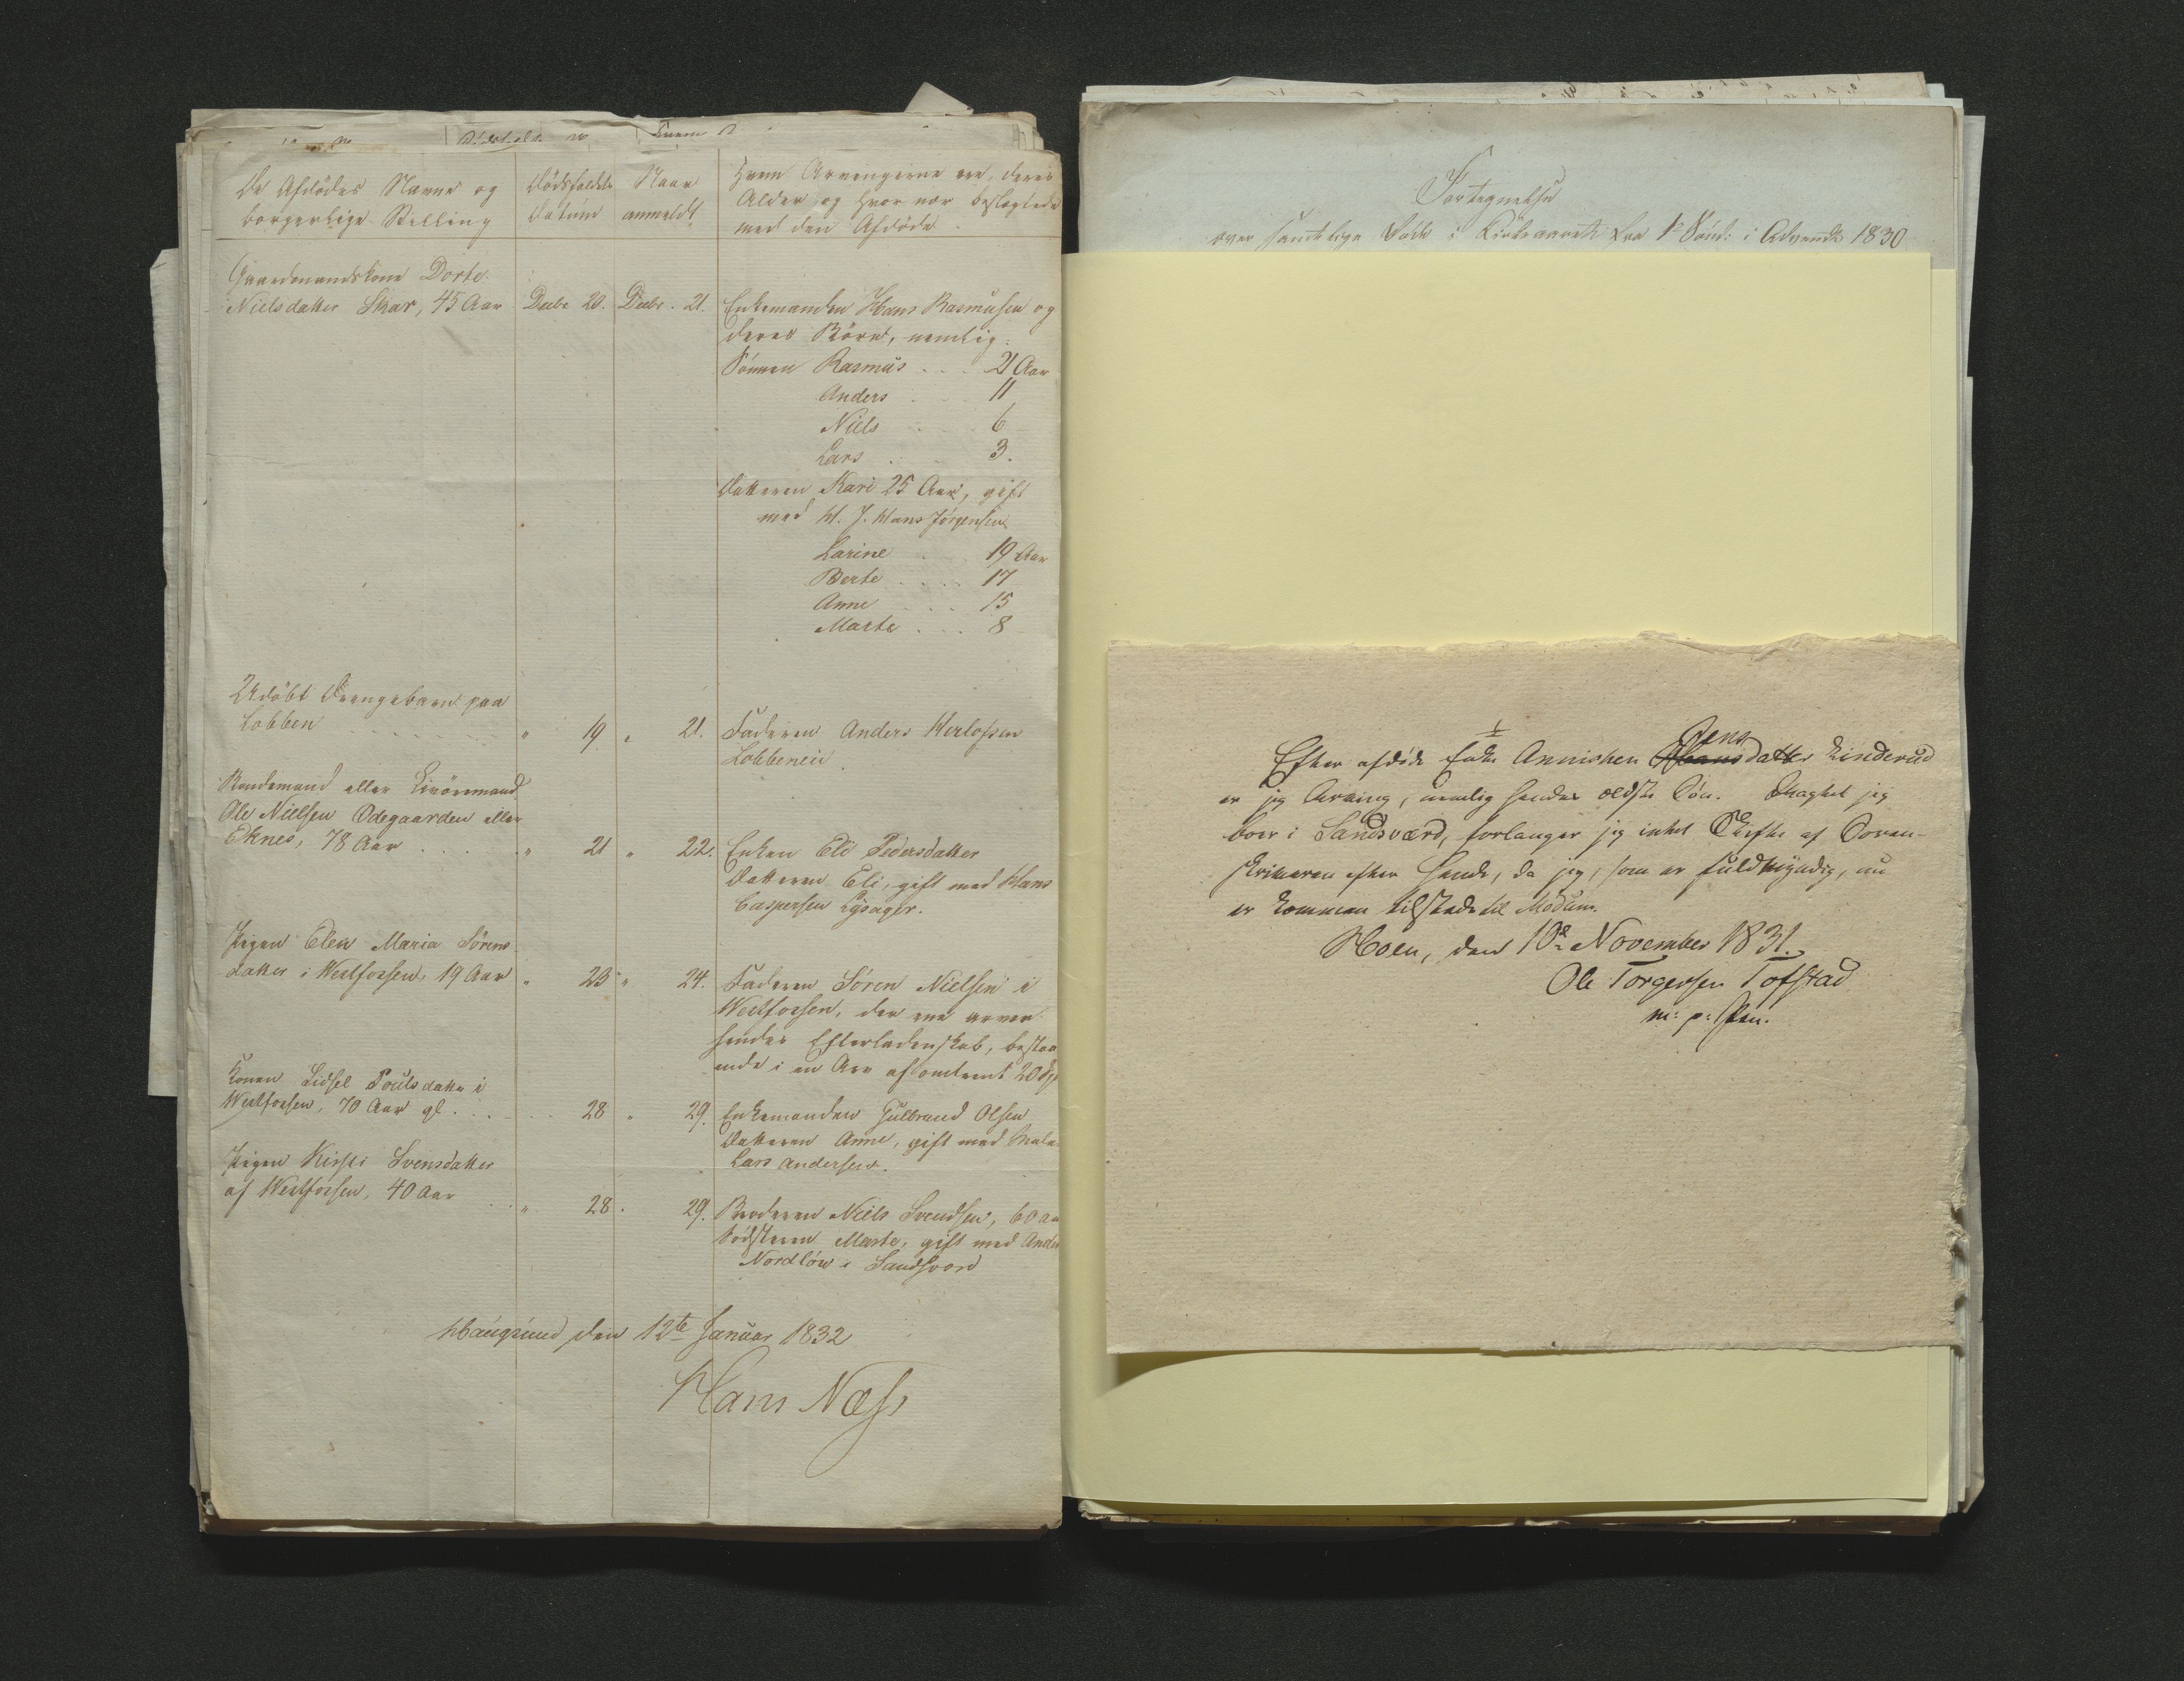 De Afdödes Navne og
borgerlige Stilling
Dödsfaldets
Datum
Naar
anmeldt
Hvem Arvingerne ere, deres
Alder, og hvor nær beslægtede
med den Afdöde.
Gaardmandskone Dorte
Nielsdatter Skar, 45 Aar
Decbr 20.
Decbr. 21.
Enkemanden Hans Rasmusen og
deres Börn, nemlig:
Sönnen Rasmus . . . 21 Aar
Anders . . 11
Niels . . . 6
Lars . . . 3.
Datteren Kari 25 Aar, gift
med H. J. Hans Jörgensen
Larine . . 19 Aar
Berte . . . . 17
Anne . . . 15
Marte . . . 8
Udöbt Drengebarn paa
Lobben . . . . . . . . " 19 " 21. Faderen Anders
Lobbeneie.
Kondemand eller Livöremand
Ole Nielsen Ödegaarden eller
Eknes, 78 Aar . . . . " 21 " 22. Enken Eli Pedersdatter
Datteren Eli, gift med Hans
Caspersen Lysager.
Pigen Elen Maria Sörens
datter i Westfossen, 19 Aar " 23 " 24. Faderen Sören Nielsen i
Westfossen, der ene arver
hendes Efterladenskab, bestaa
ende i en Arv af omtrent 20 Spd
Konen Sidsel Poulsdatter i
Westfossen, 70 Aar gl. . . . . 28 " 29. Enkemanden Gulbrand Olsen
Datteren Anne, gift med
Lars Andersen.
Pigen Kirsti Svensdatter
af Westfossen, 40 Aar . . " 28 . 29. Broderen Niels Svendsen, 60 Aa
Södsteren Marte, gift med Ander
Nordlöw i Sandsvord
Hougsund den 12te Januar 1832
Hans Næss
Fortegnelse
over samtlige Döde i Kirkeaaret fra 1e Sönd: i Advendt 1830
Jens
Efter afdöde Enke Annichen Hansdatter Linderud
er jeg Arving, nemlig hendes ældste Sön. Uagtet jeg
boer i Sandsværd, forlanger jeg intet Skifte af Soren-
skriveren efter hende, da jeg, som er fuldmyndig, nu
er kommen tilstede til Modum.
Hoen, den 10de November 1831.
Ole Torgersen Tofstad
m: p: Pen.